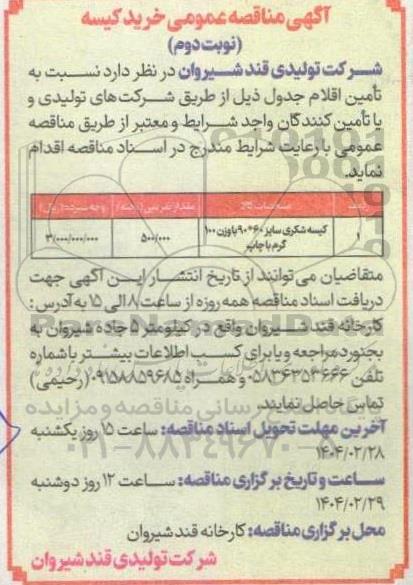 آگهی مناقصه عمومی خرید کیسه
(نوبت دوم)
شرکت تولیدی قند شیروان در نظر دارد نسبت به
تأمین اقلام جدول ذیل از طریق شرکت‌های تولیدی و
یا تأمین کنندگان واجد شرایط و معتبر از طریق مناقصه
عمومی با رعایت شرایط مندرج در اسناد مناقصه اقدام
نماید.
ردیف مشخصات کالا مقدار تقریبی (تخته) وجه سپرده (ریال)
۱ کیسه شکری سایز ۶۰*۹۰ با وزن ۱۰۰ گرم با چاپ ۵۰۰/۰۰۰ ۳/۰۰۰/۰۰۰/۰۰۰
متقاضیان می توانند از تاریخ انتشار این آگهی جهت
دریافت اسناد مناقصه همه روزه از ساعت ۸ الی ۱۵ به آدرس:
کارخانه قند شیروان واقع در کیلومتر ۵ جاده شیروان به
بجنورد مراجعه و یا برای کسب اطلاعات بیشتر با شماره
تلفن ۰۵۸۱۳۶۳۵۳۶۶۶ و همراه ۰۹۱۵۸۸۵۹۶۸۵ (رحیمی)
تماس حاصل نمایند.
آخرین مهلت تحویل اسناد مناقصه: ساعت ۱۵ روز یکشنبه
۱۴۰۴/۰۲/۲۸
ساعت و تاریخ برگزاری مناقصه: ساعت ۱۲ روز دوشنبه
۱۴۰۴/۰۲/۲۹
محل برگزاری مناقصه: کارخانه قند شیروان
شرکت تولیدی قند شیروان
۰۲۱-۸۸۳۴۹۶۷۰-۵